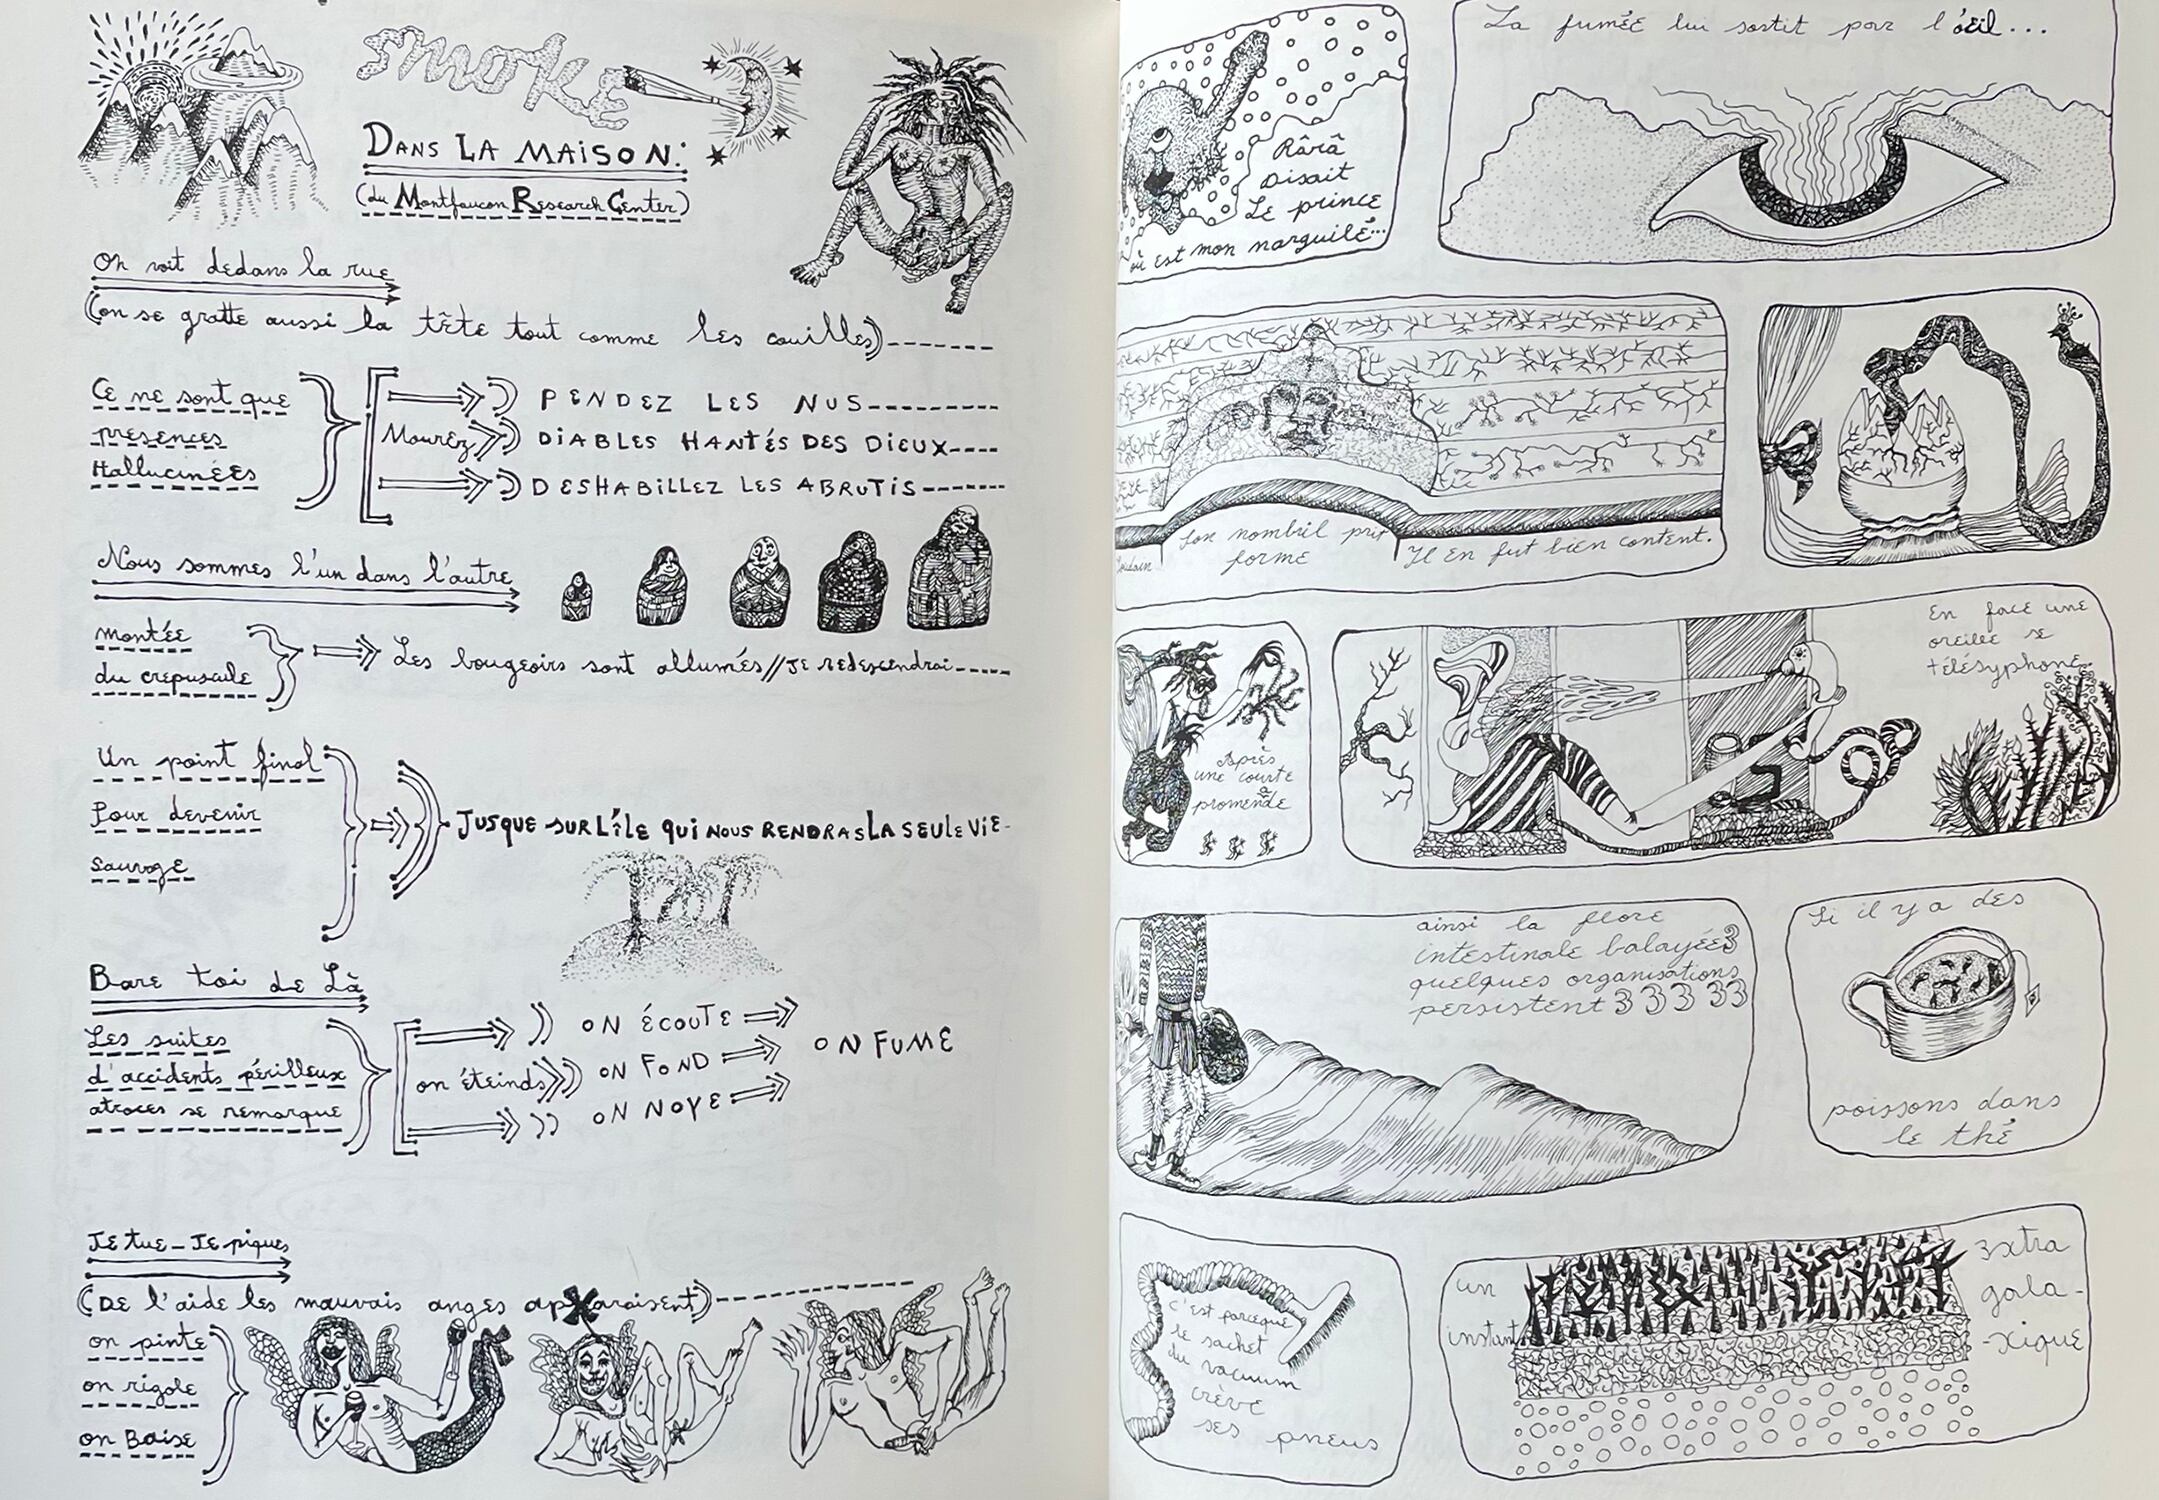 smoke
DANS LA MAISON:
(du Montfaucon Research Center)
On voit dedans la rue
(on se gratte aussi la tête tout comme les couilles)
Ce ne sont que
présences
Hallucinées
PENDEZ LES NUS
Mourez
DIABLES HANTÉS DES DIEUX
DESHABILLEZ LES ABRUTIS
Nous sommes l'un dans l'autre
montée
du crépuscule
Les bougeoirs sont allumés//JE redescendrai
Un point final
Pour devenir
sauvage
JUSQUE SUR L'îLE qui NOUS RENDRAS LA SEULE ViE
Bare toi de Là
Les suites
d'accidents périlleux
atroces se remarque
on éteinds
ON ÉCOUTE
ON FOND
ON NOYE
ON FUME
JE tue - JE piques
(DE l'aide les mauvais anges apparaisent)
on pinte
on rigole
on Baise
Rârâ
Disait
Le prince
où est mon narguilé...
La fumée lui sortit par l'œil...
Soudain
Son nombril prit
forme
Il en fut bien content.
Après
une courte
promenade
En face une
oreille se
télésyphone
ainsi la flore
intestinale balayée3
quelques organisations
persistent 3 3 3 33
Si il y a des
poissons dans
le thé
c'est parceque
le sachet
du vacuum
crève
ses pneus
un
instant
3xtra
gala-
-xique